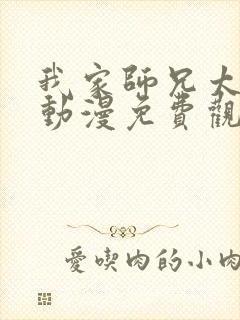 我家師兄太
動漫免費觀
愛喫肉的小肉